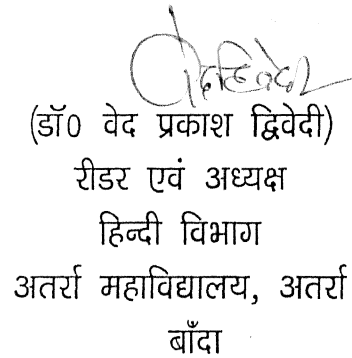 (डॉ0 वेद प्रकाश द्विवेदी)
रीडर एवं अध्यक्ष
हिन्दी विभाग
अतर्रा महाविद्यालय, अतर्रा
बाँदा